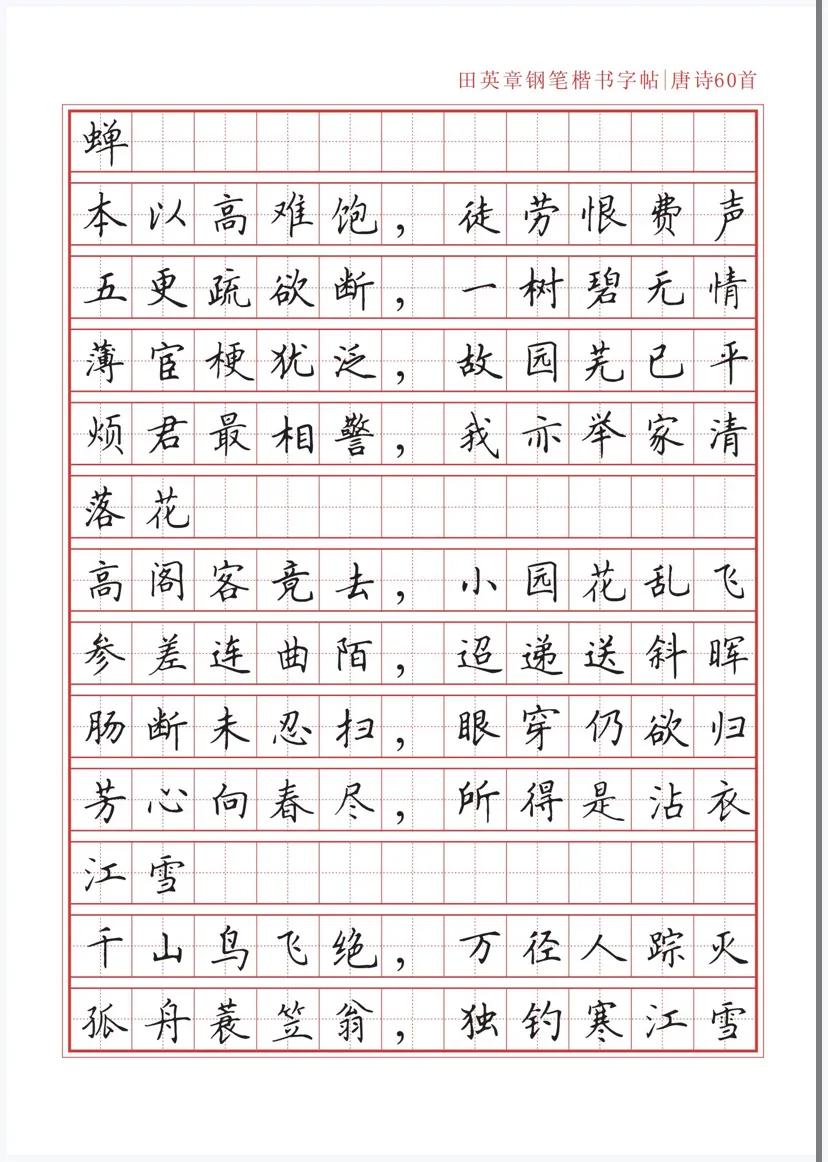 田英章钢笔楷书字帖|唐诗60首
蝉
本以高难饱，徒劳恨费声
五更疏欲断，一树碧无情
薄宦梗犹泛，故园芜已平
烦君最相警，我亦举家清
落花
高阁客竟去，小园花乱飞
参差连曲陌，迢递送斜晖
肠断未忍扫，眼穿仍欲归
芳心向春尽，所得是沾衣
江雪
千山鸟飞绝，万径人踪灭
孤舟蓑笠翁，独钓寒江雪